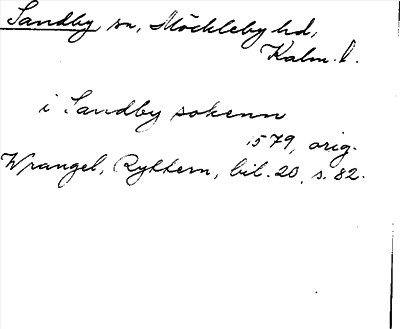 Sandby sn, Möckleby hd,
Kalm. l.
i Sandby sokenn
1579, orig.
Wrangel, Ryttern, bil. 20, s. 82.